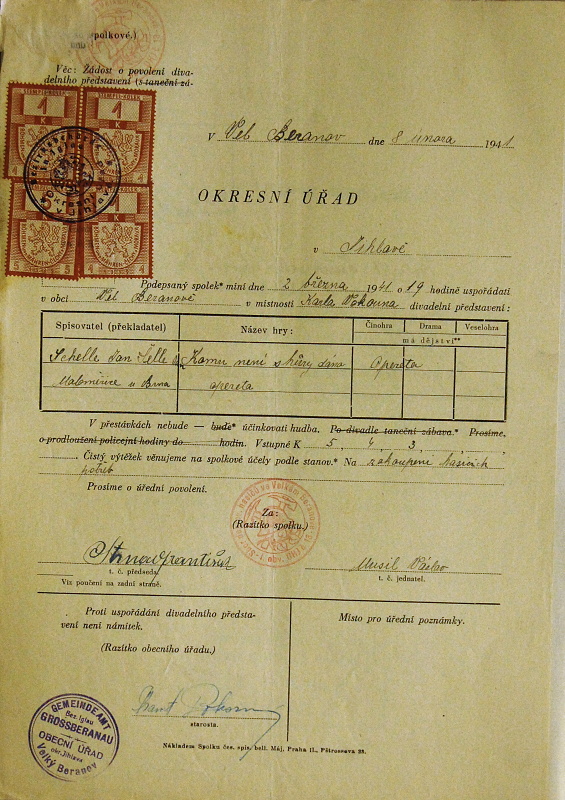 spolkové.)
Věc: Žádost o povolení diva-
delního představení (s taneční zá-
V Vel Beranov dne 8 února 1941
OKRESNÍ ÚŘAD
v Jihlavě
Podepsaný spolek* míní dne 2 března 1941 o 19 hodině uspořádati
v obci Vel Beranově v místnosti Karla Pokorna divadelní představení:
Spisovatel (překladatel) Název hry: Činohra Drama Veselohra
má dějství**
Schelle Jan Komu není s hůry dáno Opereta
Maloměřice u Brna opereta
V přestávkách nebude — bude* účinkovati hudba. Po divadle taneční zábava.* Prosíme,
o prodloužení policejní hodiny do hodin. Vstupné K 5, 4, 3,
Čistý výtěžek věnujeme na spolkové účely podle stanov.* Na zakoupení hasicích
potřeb
Prosíme o úřední povolení.
Za:
(Razítko spolku.)
Musil Václav
t. č. předseda. t. č. jednatel.
Viz poučení na zadní straně.
Proti uspořádání divadelního předsta-
vení není námitek.
Místo pro úřední poznámky.
(Razítko obecního úřadu.)
starosta.
GEMEINDEAMT
Bez. Iglau
GROSSBERANAU
OBECNÍ ÚŘAD
okr. Jihlava
Velký Beranov
Nákladem Spolku čes. spis. bell. Máj, Praha II., Pštrossova 28.